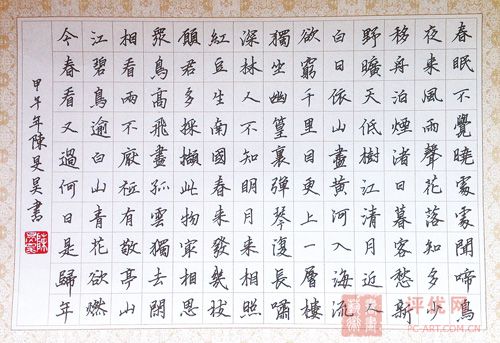 春眠不覺曉處處聞啼鳥
夜來風雨聲花落知多少
移舟泊煙渚日暮客愁新
野曠天低樹江清月近人
白日依山盡黄河入海流
欲窮千里目更上一層樓
獨坐幽篁裏彈琴復長嘯
深林人不知明月來相照
紅豆生南國春來發幾枝
願君多採擷此物最相思
眾鳥高飛盡孤雲獨去閒
相看兩不厭衹有敬亭山
江碧鳥逾白山青花欲燃
今春看又過何日是歸年
甲午年陳旻昊書
评优网
PC-ART.COM.CN